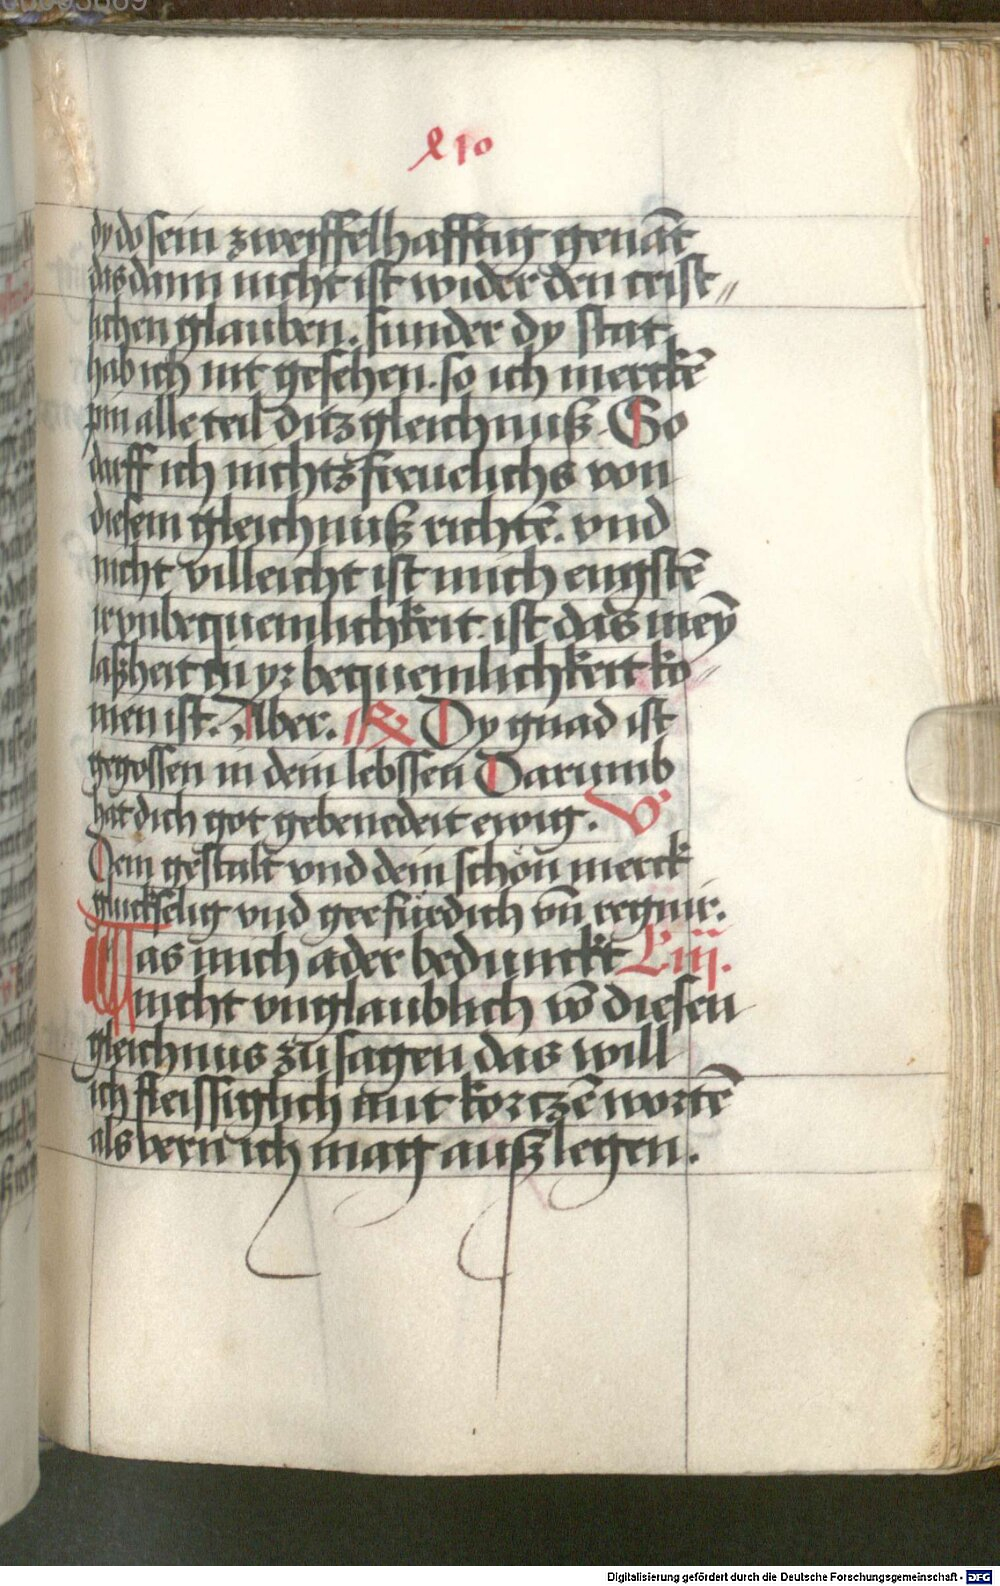 l10
dy do sein zweiffelhafftig genãt
das dann nicht ist wider den crist〃
lichen glauben. sunder dy stat
hab ich nit gesehen. so ich merckẽ
pin alle teil ditz gleichnuß So
darff ich nichtz freuelichs von
diesem gleichnuß richtẽ. vnd
nicht villeicht ist mich engstẽ
ir vnbequemlichkeit. ist das meȳ
laßheit zu yr bequemlichkeit ko〃
men ist. Aber. ℟ Dy gnad ist
gegossen in dein lebssen Darumb
hat dich got gebenedeit ewig. V
Dein gestalt vnd dein schön merck
gluckselig vnd gee fürdich vñ regnir.
Was mich ader bedunckt L iij.
nicht vnglaublich võ diesen
gleichnus zu sagen das will
ich fleissiglich mit kortzẽ wortẽ
als vern ich mag außlegen.
Digitalisierung gefördert durch die Deutsche Forschungsgemeinschaft - DFG